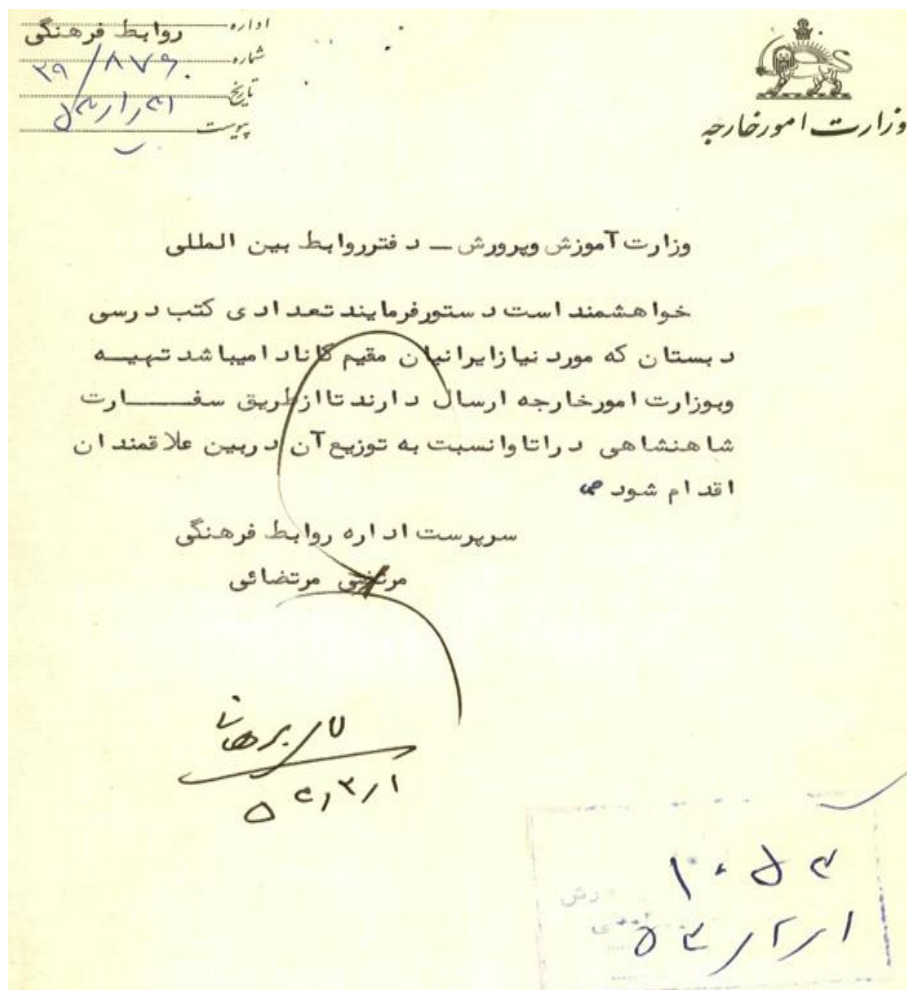 وزارت امورخارجه
اداره روابط فرهنگی
شماره ۲۹/۸۷۶۰
تاریخ
پیوست
وزارت آموزش وپرورش ــ دفترروابط بین المللی
خواهشمند است دستورفرمایند تعدادی کتب درسی
دبستان که مورد نیازایرانیان مقیم کانادا میباشد تهیــه
وبوزارت امورخارجه ارسال دارند تاازطریق سفــــارت
شاهنشاهی دراتاوانسبت به توزیع آن دربین علاقمندان
اقدام شود
سرپرست اداره روابط فرهنگی
مرتضی مرتضائی